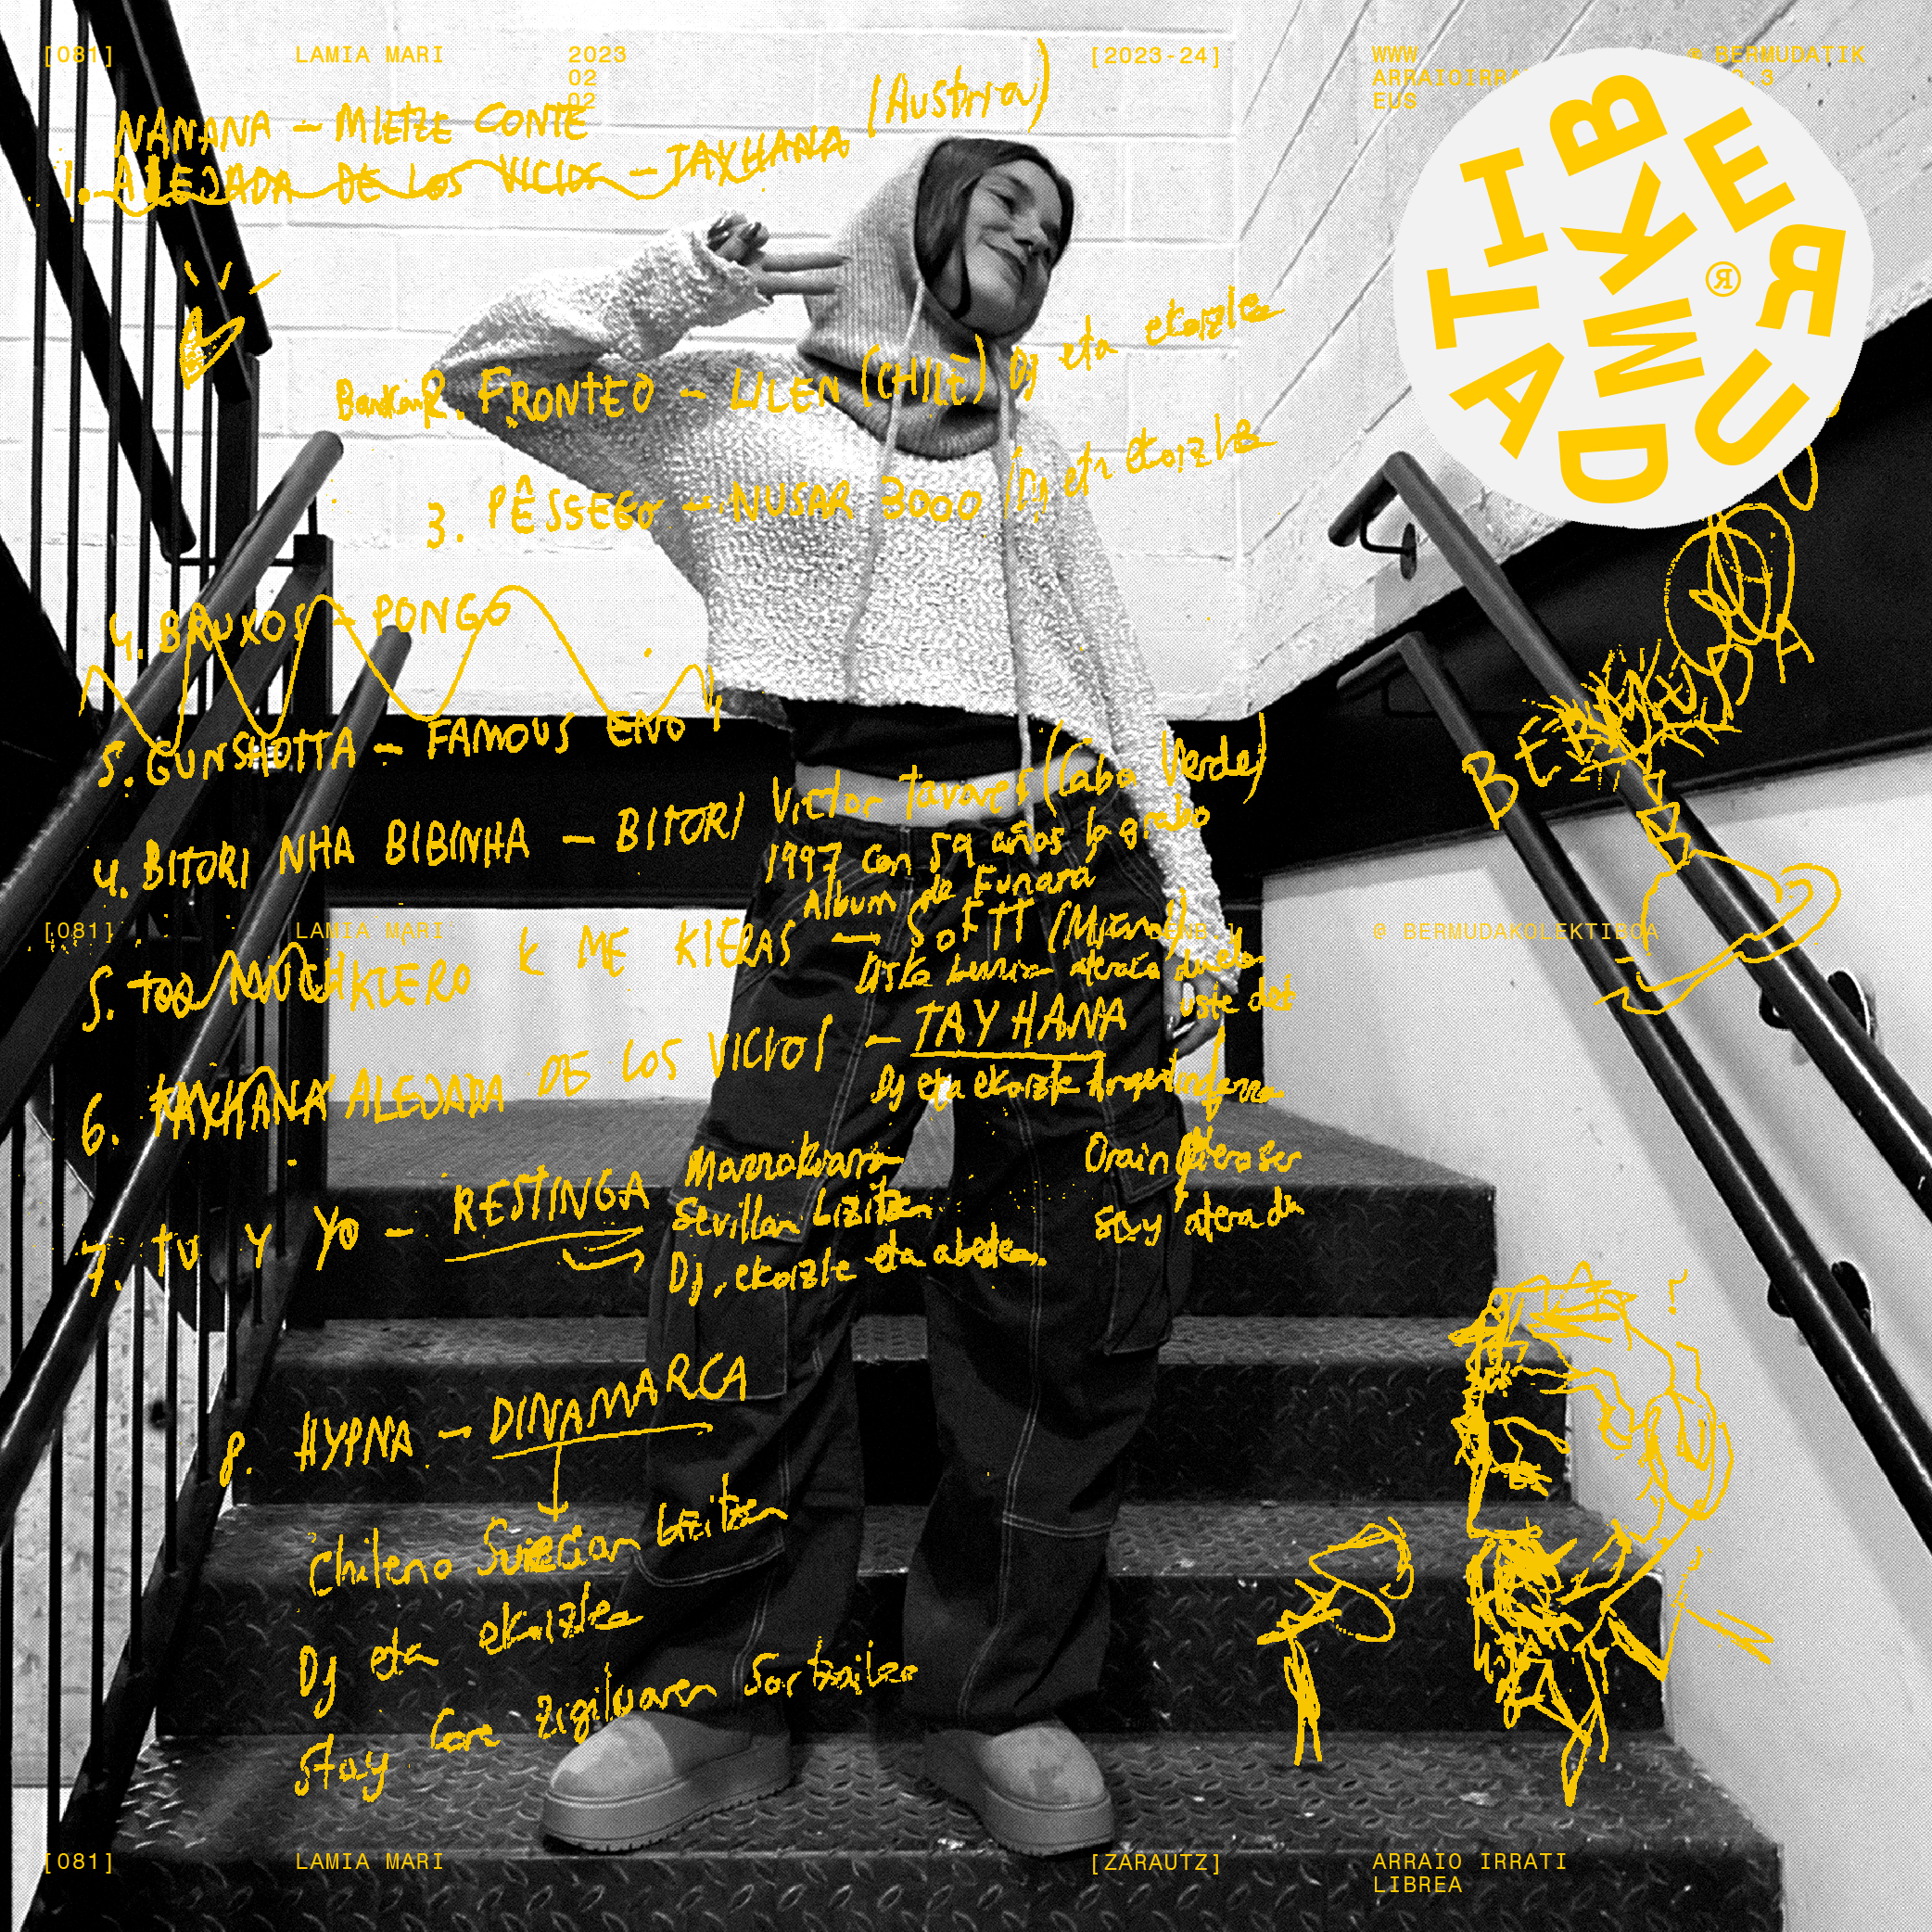 [081] LAMIA MARI 2023 [2023-24] WWW © BERMUDATIK
02 ARRAIOIRRA
02 EUS
(Austria)
NANANA - MIETZE CONTE
1. ALEJADA DE LOS VICIOS - TAYHANA
BERMUDATIK
®
2. FRONTEO - LILEN (CHILE) Dj eta ekoizlea
3. PÊSSEGO - NUSAR 3000 (Dj eta ekoizlea
4. BRUXOS - PONGO
5. GUNSHOTTA - FAMOUS ENO
BERMUDA
4. BITORI NHA BIBINHA - BITORI Victor Tavares (Cabo Verde)
1997 con 59 años lo grabo
Album de Funana
[081] LAMIA MARI © BERMUDAKOLEKTIBOA
5. TOO MUCH KIERO K ME KIERAS - SOFTT
uste det
6. TAYHANA ALEJADA DE LOS VICIOS - TAYHANA
Dj eta ekoizle
Orain
atera da
7. TU Y YO - RESTINGA
Sevillan bizitzen
Dj, ekoizle eta
8. HYPNA - DINAMARCA
Chileno Suecian bizitzen
Dj eta ekoizlea
Stay Core zigiluaren sortzailea
[081] LAMIA MARI [ZARAUTZ] ARRAIO IRRATI
LIBREA